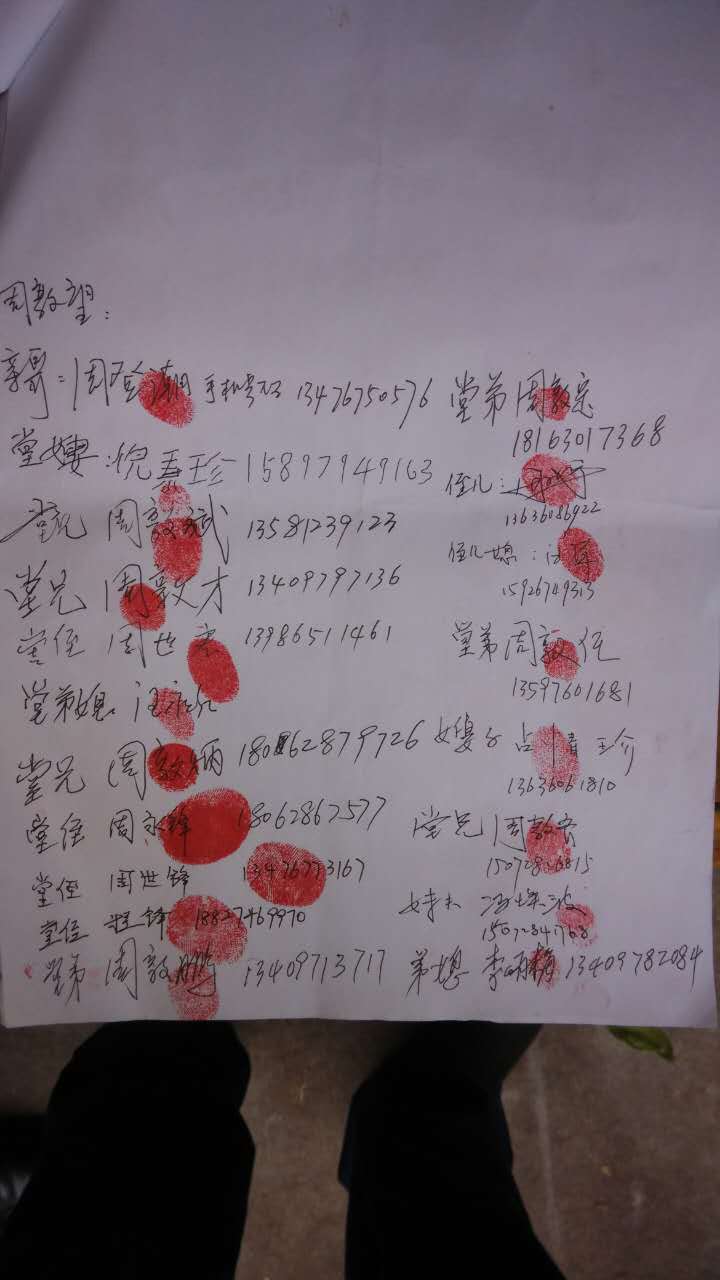 周敦望：
周 手机号码 13476750576 堂弟 周敦宗
18163017368
堂嫂：倪 珍 15897949163 侄儿：
13636086922
堂兄 周敦斌 13581239123
侄儿媳：汪
15926749313
堂兄 周敦才 13409797136
堂侄 周世 13986511461 堂弟 周敦伍
13597601681
堂弟媳：汪
堂兄 周敦炳 18062879726 嫂子 占 珍
13636061810
堂侄 周永锋 18062867577 堂兄 周敦
15072826815
堂侄 周世锋 13476773167
姊夫 冯 波
15072841768
堂侄 程锋 18827469970
堂弟 周敦鹏 13409713717 弟媳 李 13409782084